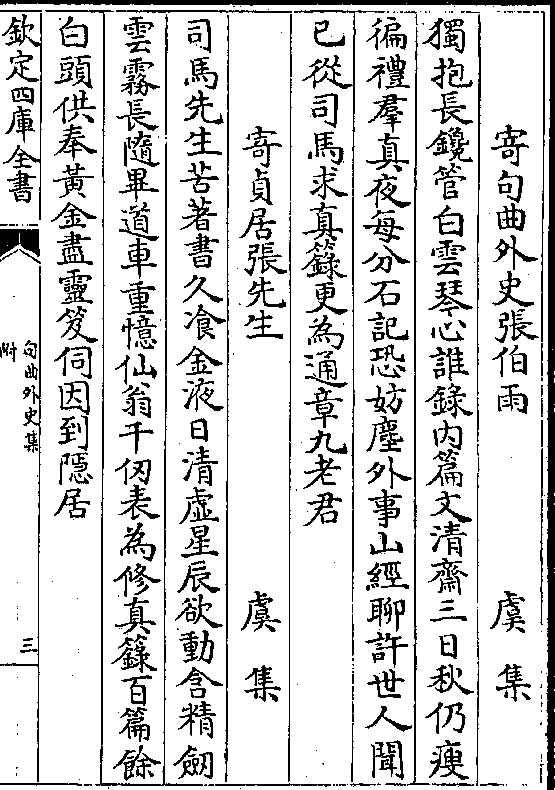 寄句曲外史張伯雨　虞集
獨抱長鑱管白雲琴心誰錄内篇文清齋三日秋仍瘦
徧禮羣真夜每分石記恐妨塵外事山經聊許世人聞
已從司馬求真籙更為通章九老君
寄貞居張先生　虞集
司馬先生苦著書久飡金液日清虛星辰欲動含精劒
雲霧長隨畢道車重憶仙翁千仞表為修真籙百篇餘
白頭供奉黃金盡靈笈何因到隱居
欽定四庫全書
句曲外史集
附
三